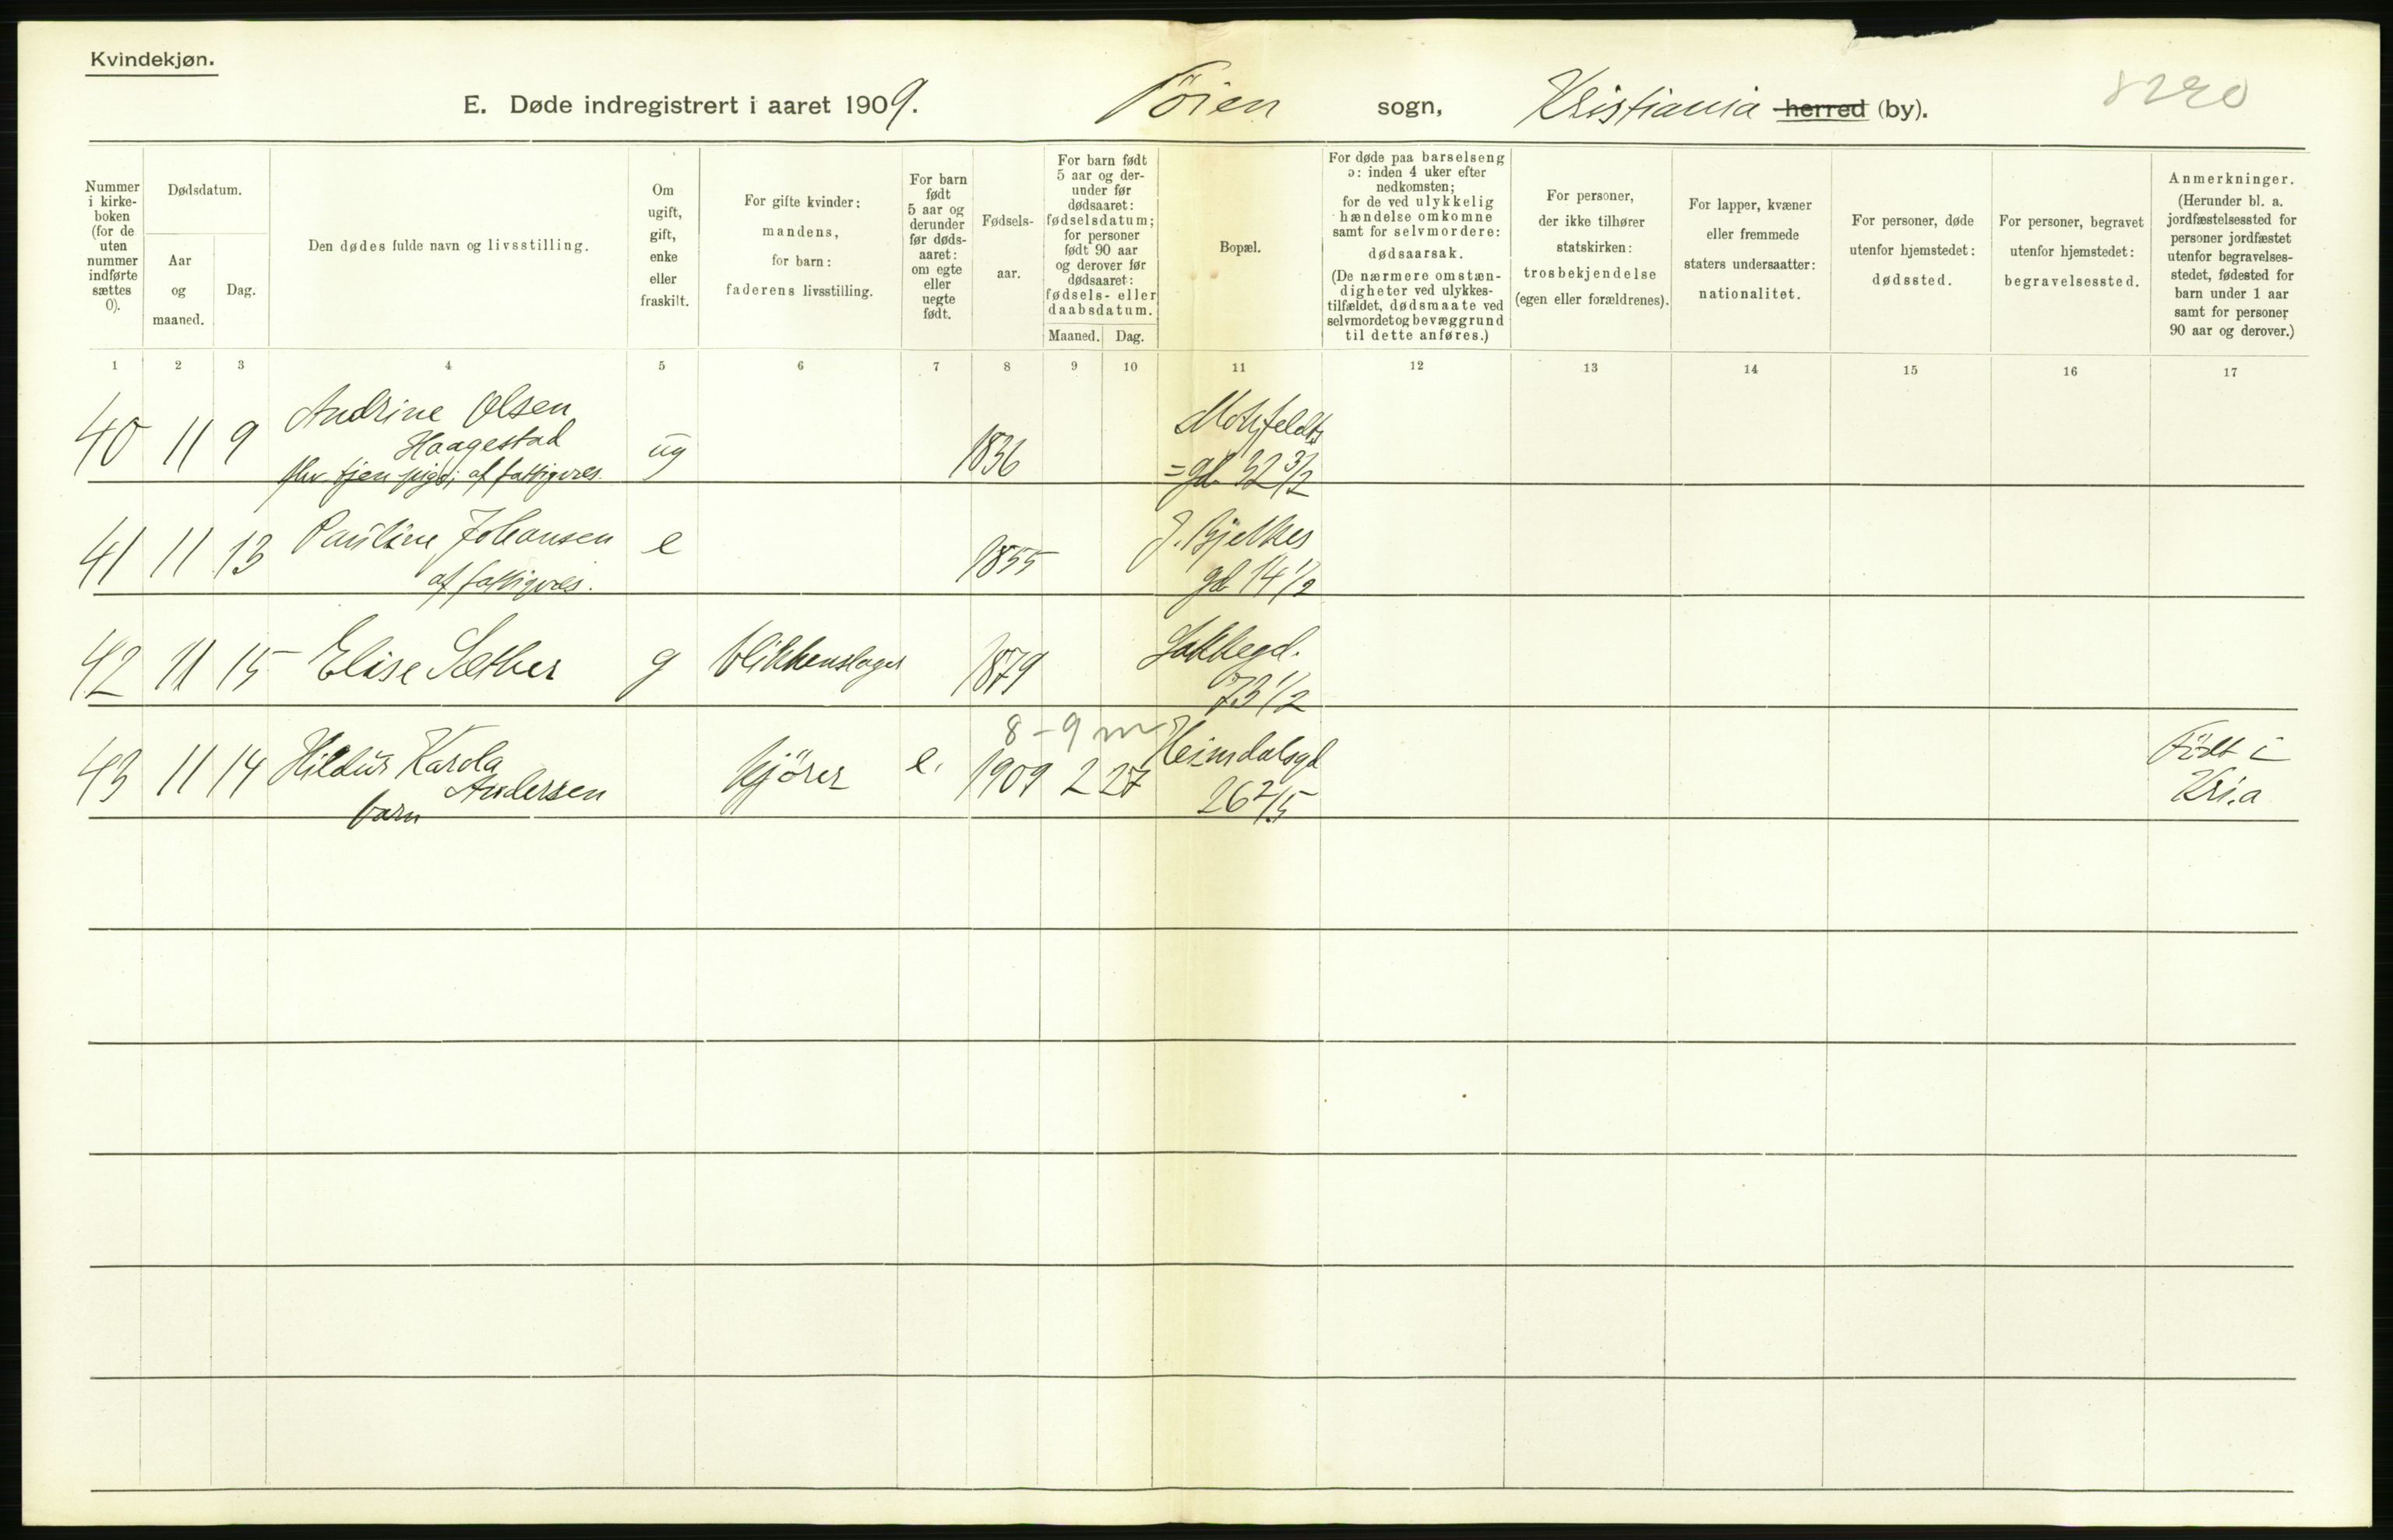 Kvindekjøn.
E. Døde indregistrert i aaret 1909. Töien sogn, Kristiania herred (by). 8220
Nummer i kirke-boken (for de uten nummer indførte sættes 0).
Dødsdatum.
Aar og maaned.
Dag.
Den dødes fulde navn og livsstilling.
Om ugift, gift, enke eller fraskilt.
For gifte kvinder: mandens, for barn: faderens livsstilling.
For barn født 5 aar og derunder før døds-aaret: om egte eller uegte født.
Fødsels-aar.
For barn født 5 aar og der-under før dødsaaret: fødselsdatum; for personer født 90 aar og derover før dødsaaret: fødsels- eller daabsdatum.
Maaned. Dag.
Bopæl.
For døde paa barselseng ɔ: inden 4 uker efter nedkomsten; for de ved ulykkelig hændelse omkomne samt for selvmordere: dødsaarsak. (De nærmere omstæn-digheter ved ulykkes-tilfældet, dødsmaate ved selvmordet og bevæggrund til dette anføres.)
For personer, der ikke tilhører statskirken: trosbekjendelse (egen eller forældrenes).
For lapper, kvæner eller fremmede staters undersaatter: nationalitet.
For personer, døde utenfor hjemstedet: dødssted.
For personer, begravet utenfor hjemstedet: begravelsessted.
Anmerkninger. (Herunder bl. a. jordfæstelsessted for personer jordfæstet utenfor begravelses-stedet, fødested for barn under 1 aar samt for personer 90 aar og derover.)
1 2 3 4 5 6 7 8 9 10 11 12 13 14 15 16 17
40 11 9 Andrine Olsen ug 1836 Motzfeldts
Haagestad =gd. 32 3/2
fhv. tjen.pige; af fattigvæs.
41 11 13 Pauline Johansen e 1855 J. Bjelkes
af fattigvæs. gd 14 1/2
42 11 15 Elise Sæther g blikkenslager 1879 Lakkegd.
73 1/2
8-9 m
43 11 14 Hildur Karola kjörer e. 1909 2 27 Heimdalsgd Födt i
Andersen 26 2/5 Kri.a
barn